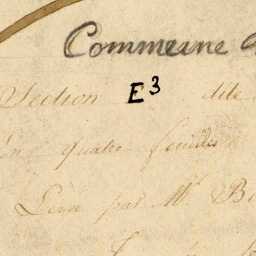 Commune d
Section E3 dite
en quatre feuilles
Levé par Mr. B